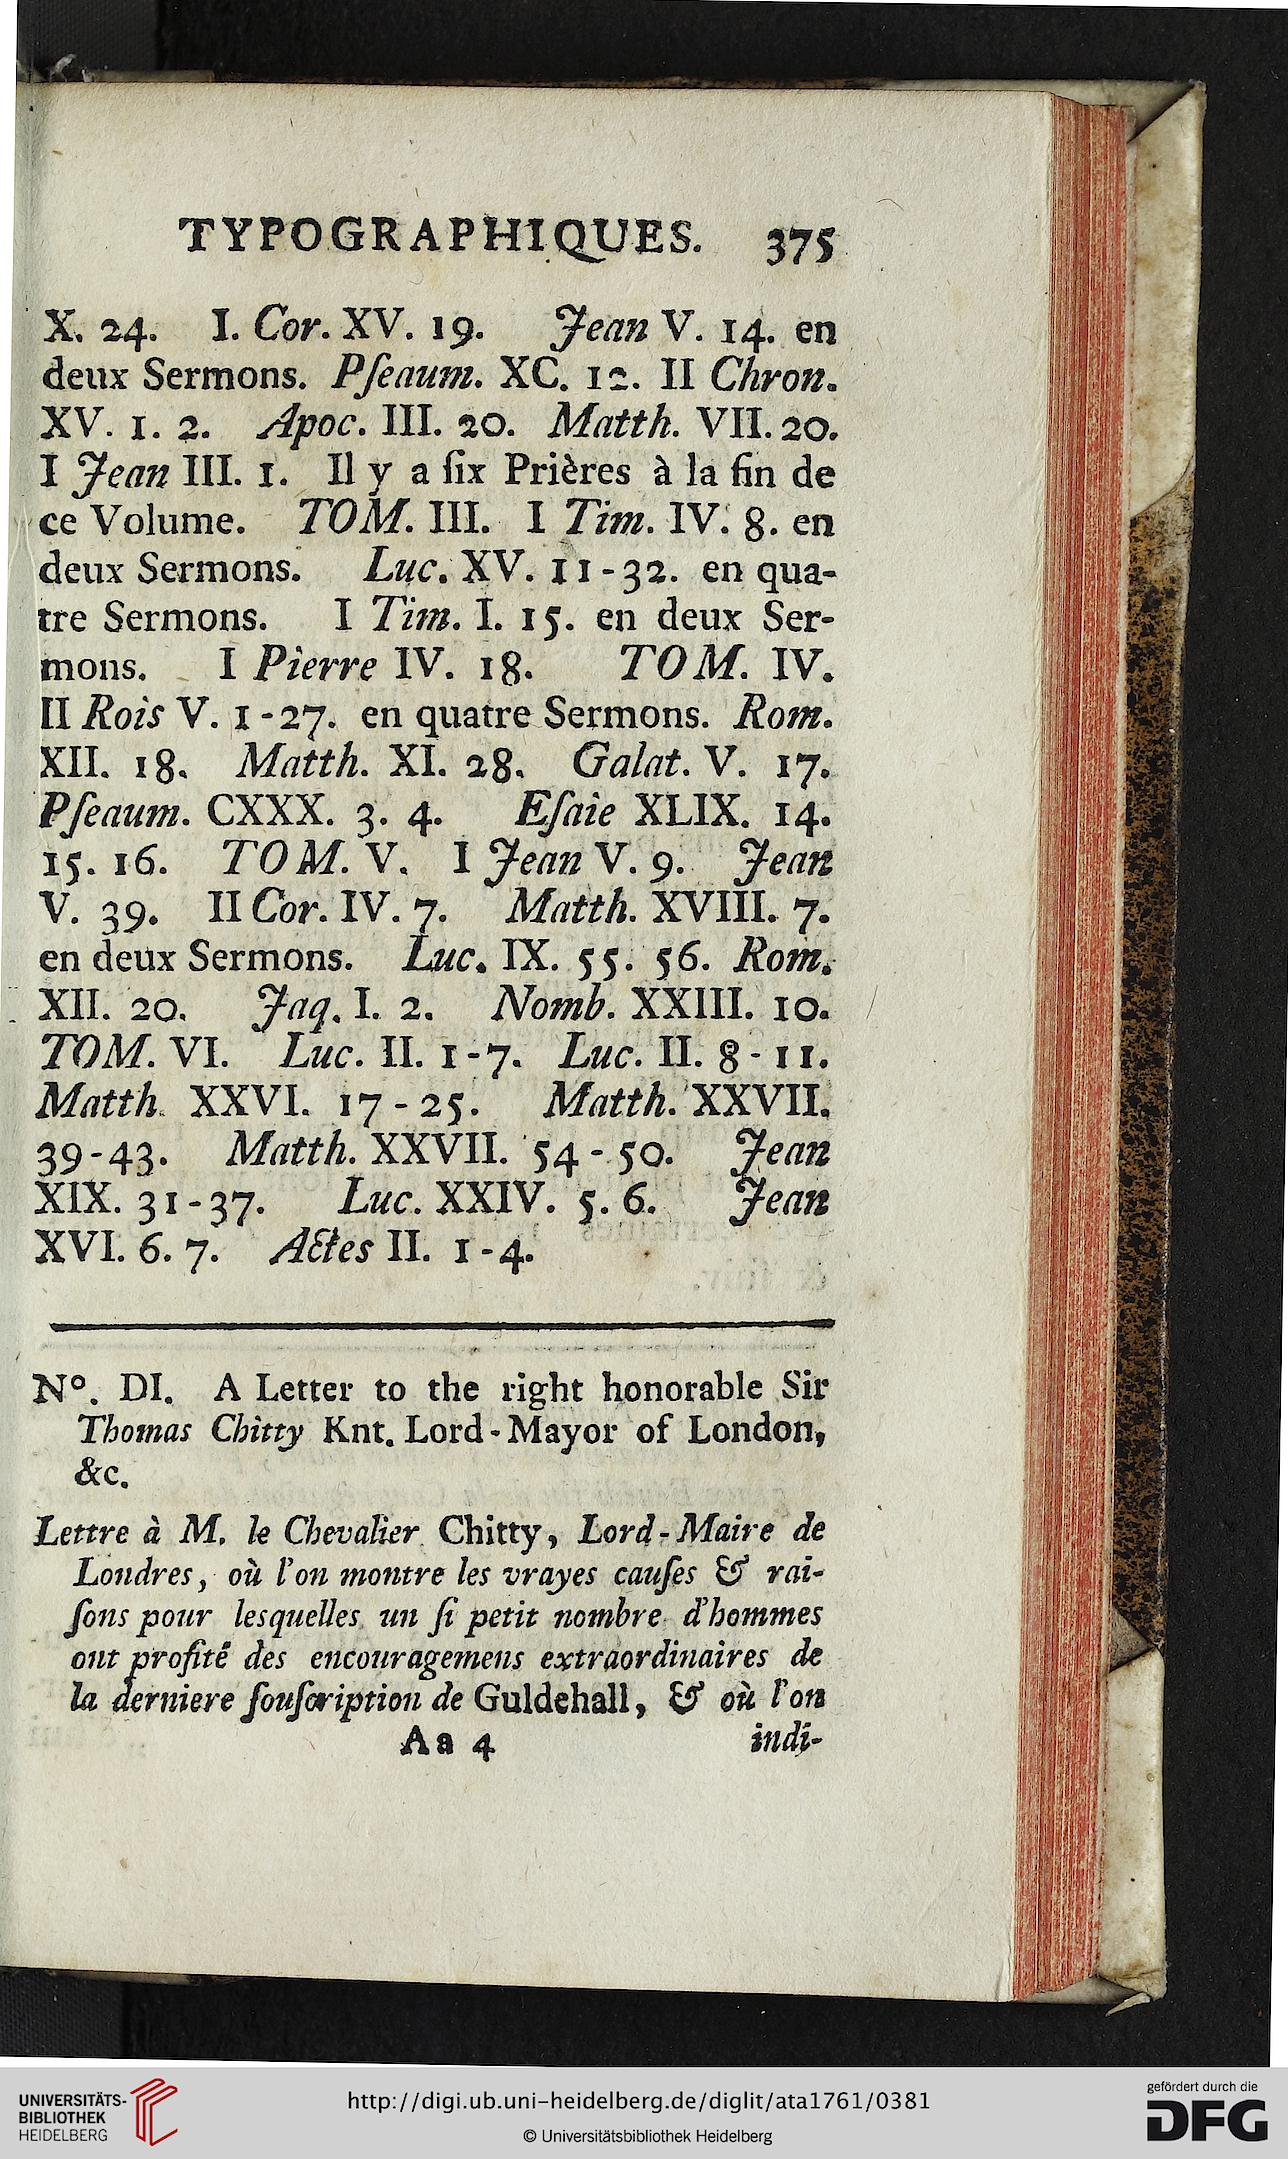 TYPOGRAPHIQUES. 375
X. 24. I. Cor. XV. 19. Jean V. 14. en
deux Sermons. Pſeaum. XC. 12. II Chron.
XV. 1. 2. Apoc. III. 20. Matth. VII. 20.
I Jean III. 1. Il y a ſix Prières à la fin de
ce Volume. TOM. III. I Tim. IV. 8. en
deux Sermons. Luc. XV. 11-32. en qua-
tre Sermons. I Tim. I. 15. en deux Ser-
mons. I Pierre IV. 18. TOM. IV.
II Rois V. 1-27. en quatre Sermons. Rom.
XII. 18. Matth. XI. 28. Galat. V. 17.
Pſeaum. CXXX. 3. 4. Eſaie XLIX. 14.
15. 16. TOM. V. I Jean V. 9. Jean
V. 39. II Cor. IV. 7. Matth. XVIII. 7.
en deux Sermons. Luc. IX. 55. 56. Rom.
XII. 20. Jaq. I. 2. Nomb. XXIII. 10.
TOM. VI. Luc. II. 1-7. Luc. II. 8-11.
Matth. XXVI. 17-25. Matth. XXVII.
39-43. Matth. XXVII. 54-50. Jean
XIX. 31-37. Luc. XXIV. 5. 6. Jean
XVI. 6. 7. Actes II. 1-4.
N°. DI. A Letter to the right honorable Sir
Thomas Chitty Knt. Lord-Mayor of London,
&c.
Lettre à M. le Chevalier Chitty, Lord-Maire de
Londres, où l'on montre les vrayes cauſes & rai-
ſons pour lesquelles un ſi petit nombre d'hommes
ont profité des encouragemens extraordinaires de
la derniere ſouſcription de Guldehall, & où l'on
Aa 4 indi-
UNIVERSITÄTS-
BIBLIOTHEK
HEIDELBERG
http://digi.ub.uni-heidelberg.de/diglit/ata1761/0381
© Universitätsbibliothek Heidelberg
gefördert durch die
DFG